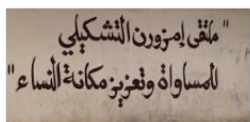 "ملتقى إمزورن التشكيلي
للمساواة وتعزيز مكانة النساء"